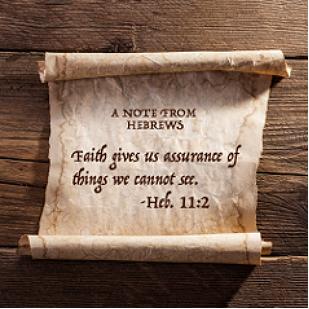 A NOTE FROM
HEBREWS
Faith gives us assurance of
things we cannot see.
-Heb. 11:2